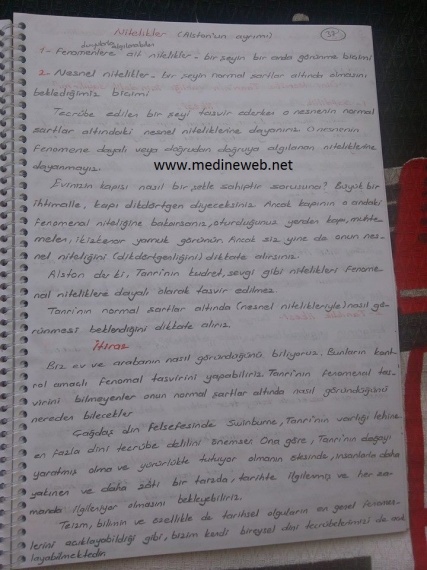 Nitelikler (Alston'un ayrımı)
33
duyularla algılanabilen
1- Fenomenlere ait nitelikler - bir şeyin bir anda görünme biçimi
2- Nesnel nitelikler - bir şeyin normal şartlar altında olmasını
beklediğimiz biçimi
Tecrübe edilen bir şeyi tasvir ederken o nesnenin normal
şartlar altındaki nesnel niteliklerine dayanırız. O nesnenin
fenomene dayalı veya doğrudan doğruya algılanan niteliklerine
dayanmayız.
www.medineweb.net
Evinizin kapısı nasıl bir şekle sahiptir sorusuna? Büyük bir
ihtimalle, kapı dikdörtgen diyeceksiniz. Ancak kapının o andaki
fenomenal niteliğine bakarsanız, oturduğunuz yerden kapı, muhte-
melen, ikizkenar yamuk görünür. Ancak siz yine de onun nes-
nel niteliğini (dikdörtgenliğini) dikkate alırsınız.
Alston der ki, Tanrı'nın kudret, sevgi gibi nitelikleri fenome-
nal niteliklere dayalı olarak tasvir edilmez
Tanrı'nın normal şartlar altında (nesnel nitelikleriyle) nasıl gö-
rünmesi beklendiğini dikkate alırız.
İtiraz
Biz ev ve arabanın nasıl göründüğünü biliyoruz. Bunların kont-
rol amaçlı fenomenal tasvirini yapabiliriz. Tanrı'nın fenomenal tas-
virini bilmeyenler onun normal şartlar altında nasıl göründüğünü
nereden bilecekler
Çağdaş din felsefesinde Swinburne, Tanrı'nın varlığı lehine
en fazla dini tecrübe delilini önemser. Ona göre, Tanrı'nın doğayı
yaratmış olma ve yürürlükte tutuyor olmanın ötesinde, insanlarla daha
yakinen ve daha zâti bir tarzda, tarihte ilgilenmiş ve her za-
manda ilgileniyor olmasını bekleyebiliriz.
Teizm, bilinin ve özellikle de tarihsel olguların en genel fenomen-
lerini açıklayabildiği gibi, bizim kendi bireysel dini tecrübelerimizi de açık
layabilmektedir.